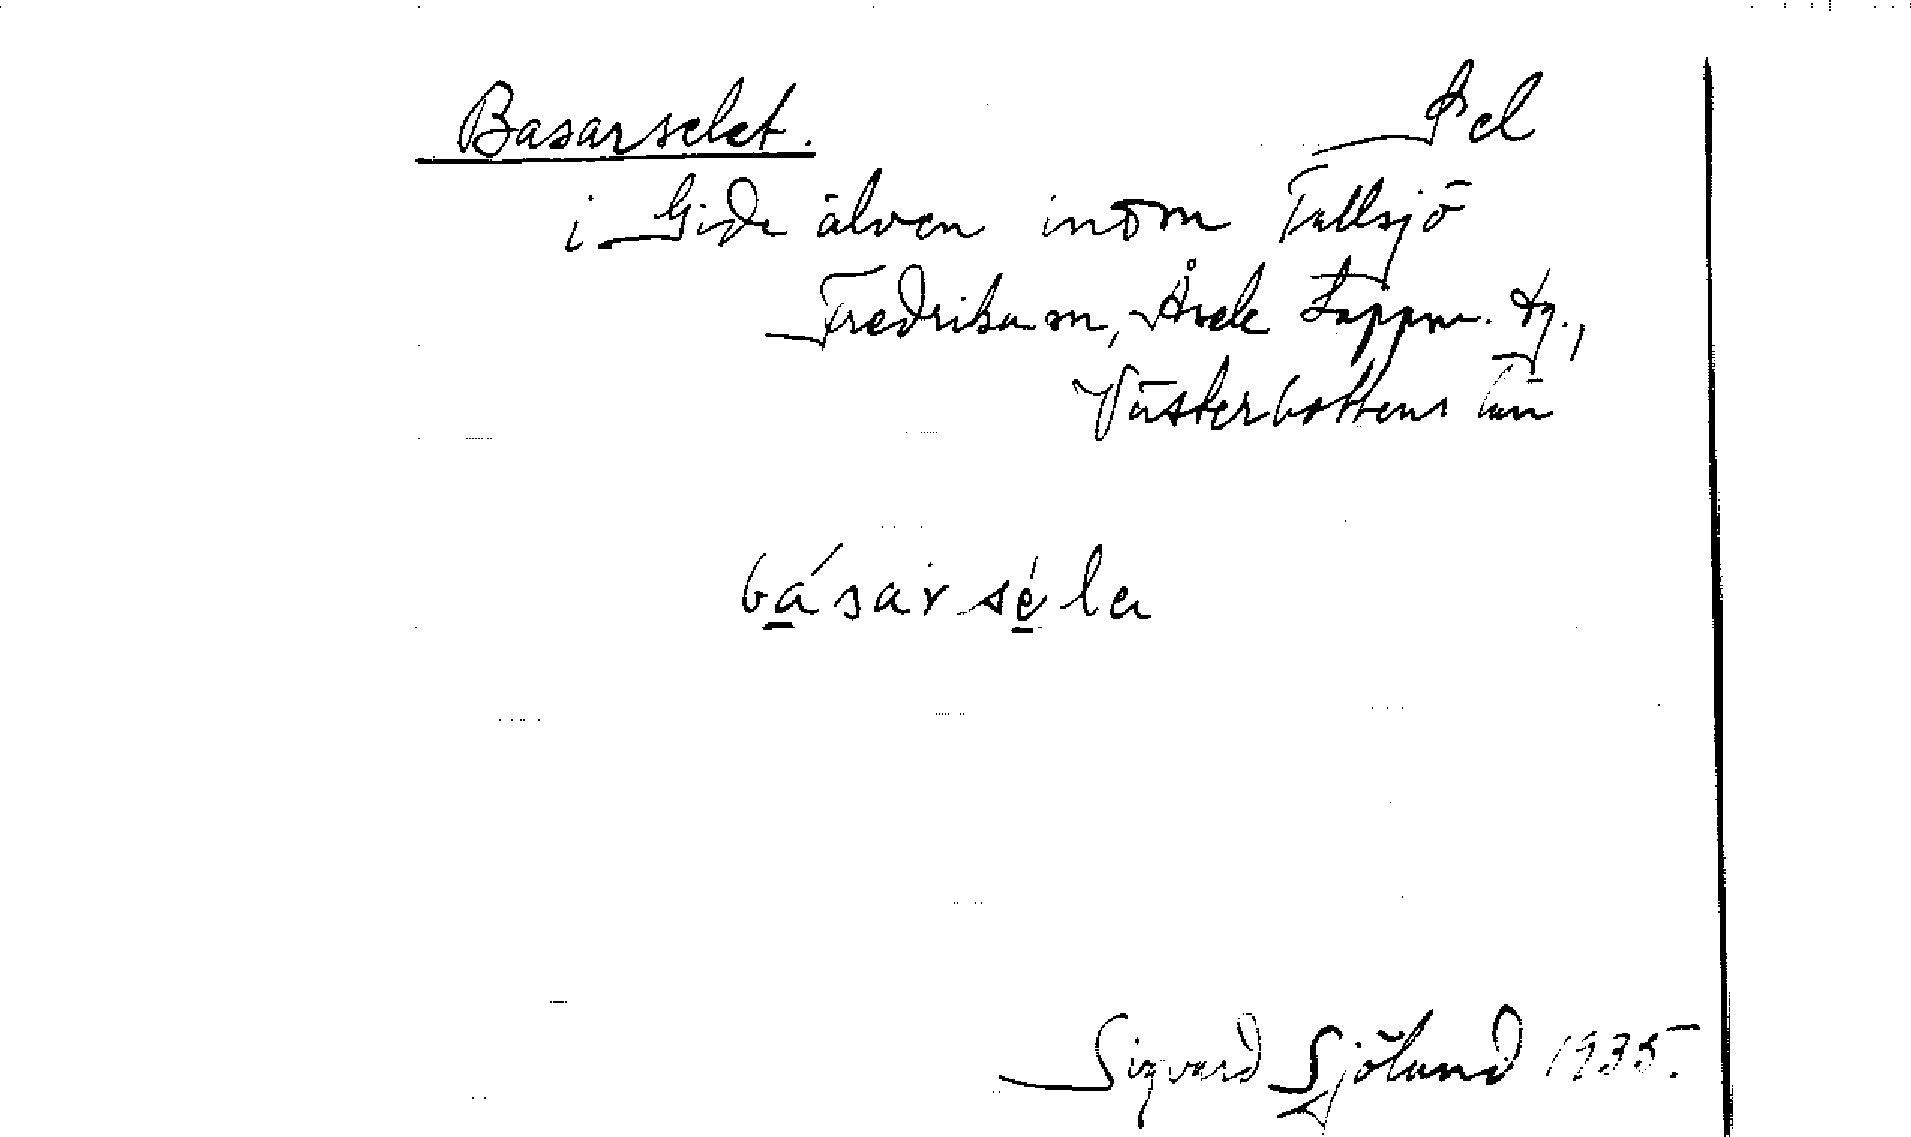 Basarselet. Sel
i Gide älven inom Tallsjö
Fredrika sn, Åsele Lappm. tg.,
Västerbottens län
básarséla
Sigvard Sjölund 1935.